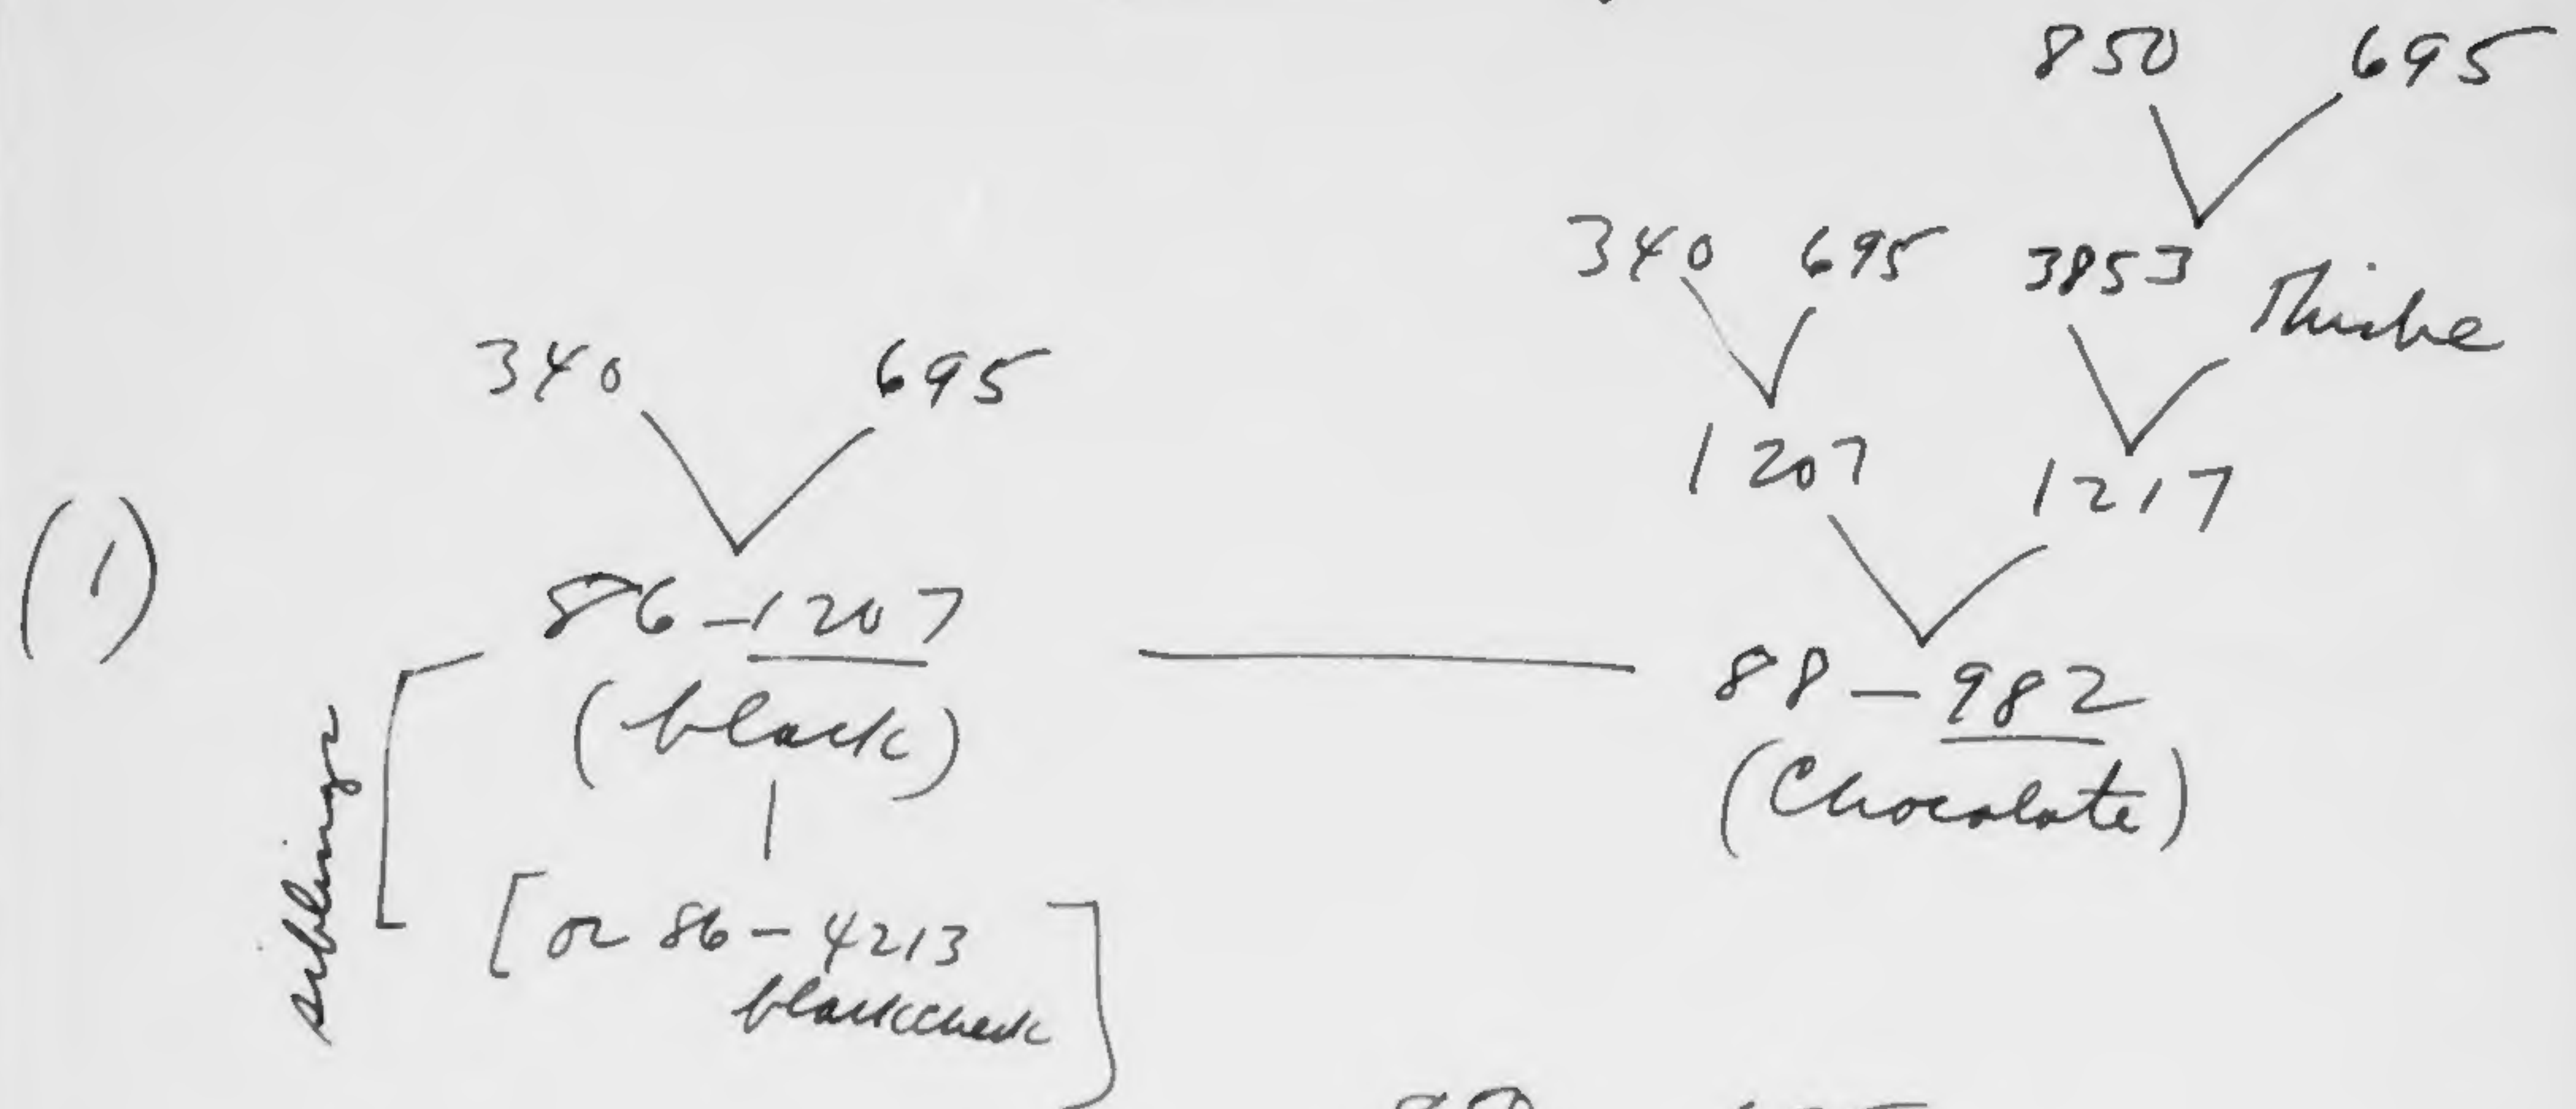 850 695
340 695 3853 Thisbe
340 695
1207 1217
(1)
86-1207 88-982
(black) (Chocolate)
siblings
[or 86-4213
blackcheck]